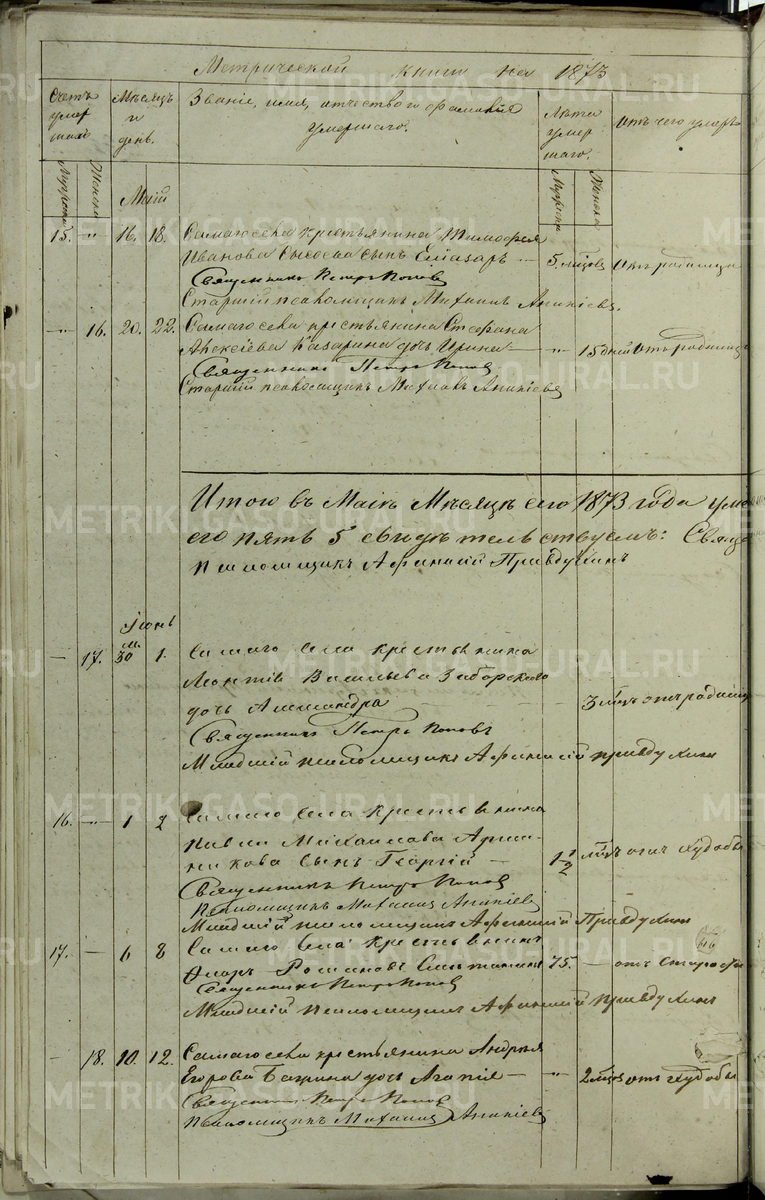 Метрической книги на 1873
Счетъ умер шихъ
Мѣсяцъ и день.
Званіе, имя, отчество и фамилія умершаго.
Лѣта умер шаго.
Отъ чего умеръ
Мужеска
Женска
Мужеска
Женска
Май
15. " 16. 18. Самаго села крестьянина Тимофея
Иванова сынъ Елиазаръ — 5. мѣсцовъ Отъ родимца
Священникъ Петръ Поповъ
Старшій псаломщикъ Михаилъ Ананіевъ.
" 16. 20. 22. Самаго села крестьянина Стефана
Алексіева Казарина дочь Ирина — " 15 дней Отъ родимца
Священникъ Петръ Поповъ
Старшій псаломщикъ Михаилъ Ананіевъ
Итого въ Маѣ Мѣсяцѣ сего 1873 года
его пять 5 свидѣтельствуемъ:
Псаломщикъ Афанасій Правдухинъ
Іюнь
— 17. м. 30 1. Самаго села крестьянина
Леонтія Васильева
дочь Александра — 3 мѣц отъ родимца
Священникъ Петръ Поповъ
Младшій псаломщикъ Афанасій Правдухинъ
16. — 1 2 Самаго села крестьянина
Павла Михаилова
сынъ Георгій — 1 1/2 мѣц отъ худобы
Священникъ Петръ Поповъ
Псаломщикъ Михаилъ Ананіевъ
Младшій псаломщикъ Афанасій Правдухинъ
17. — 6 8 Самаго села крестьянинъ
Романовъ 75. — отъ старости
Священникъ Петръ Поповъ
Младшій псаломщикъ Афанасій Правдухинъ
— 18. 10. 12. Самаго села крестьянина Андрея
Егорова дочь Агапія — " 2 мѣсц отъ худобы
Священникъ Петръ Поповъ
Псаломщикъ Михаилъ Ананіевъ
METRIKI.GASO-URAL.RU